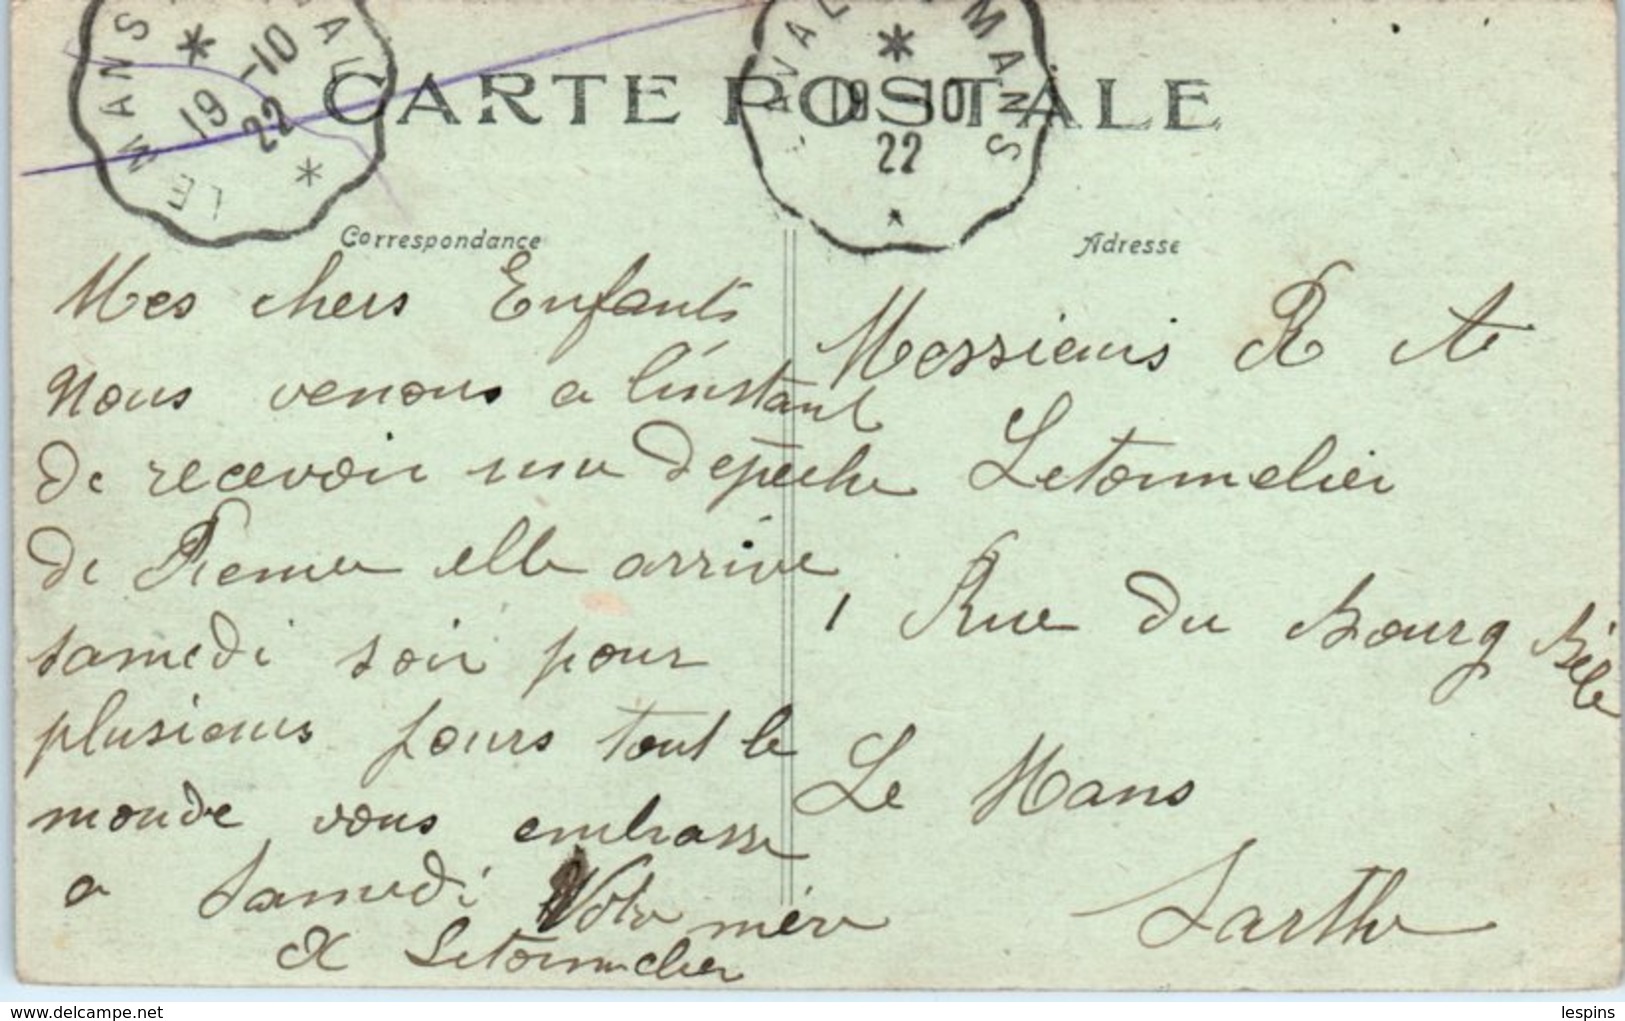 LE MANS
19 -10
22
CARTE POSTALE
LAVAL MANS
19 -10
22
Correspondance
Adresse
Mes chers Enfants
Nous venons a l'instant
de recevoir une depêche
de elle arrive
samedi soir pour
plusieurs jours tout le
monde vous embrasse
a Samedi Votre mère
Letonnelier
Messieurs R A
Letonnelier
1 Rue du Bourg Bélé
Le Mans
Sarthe
www.delcampe.net
lespins